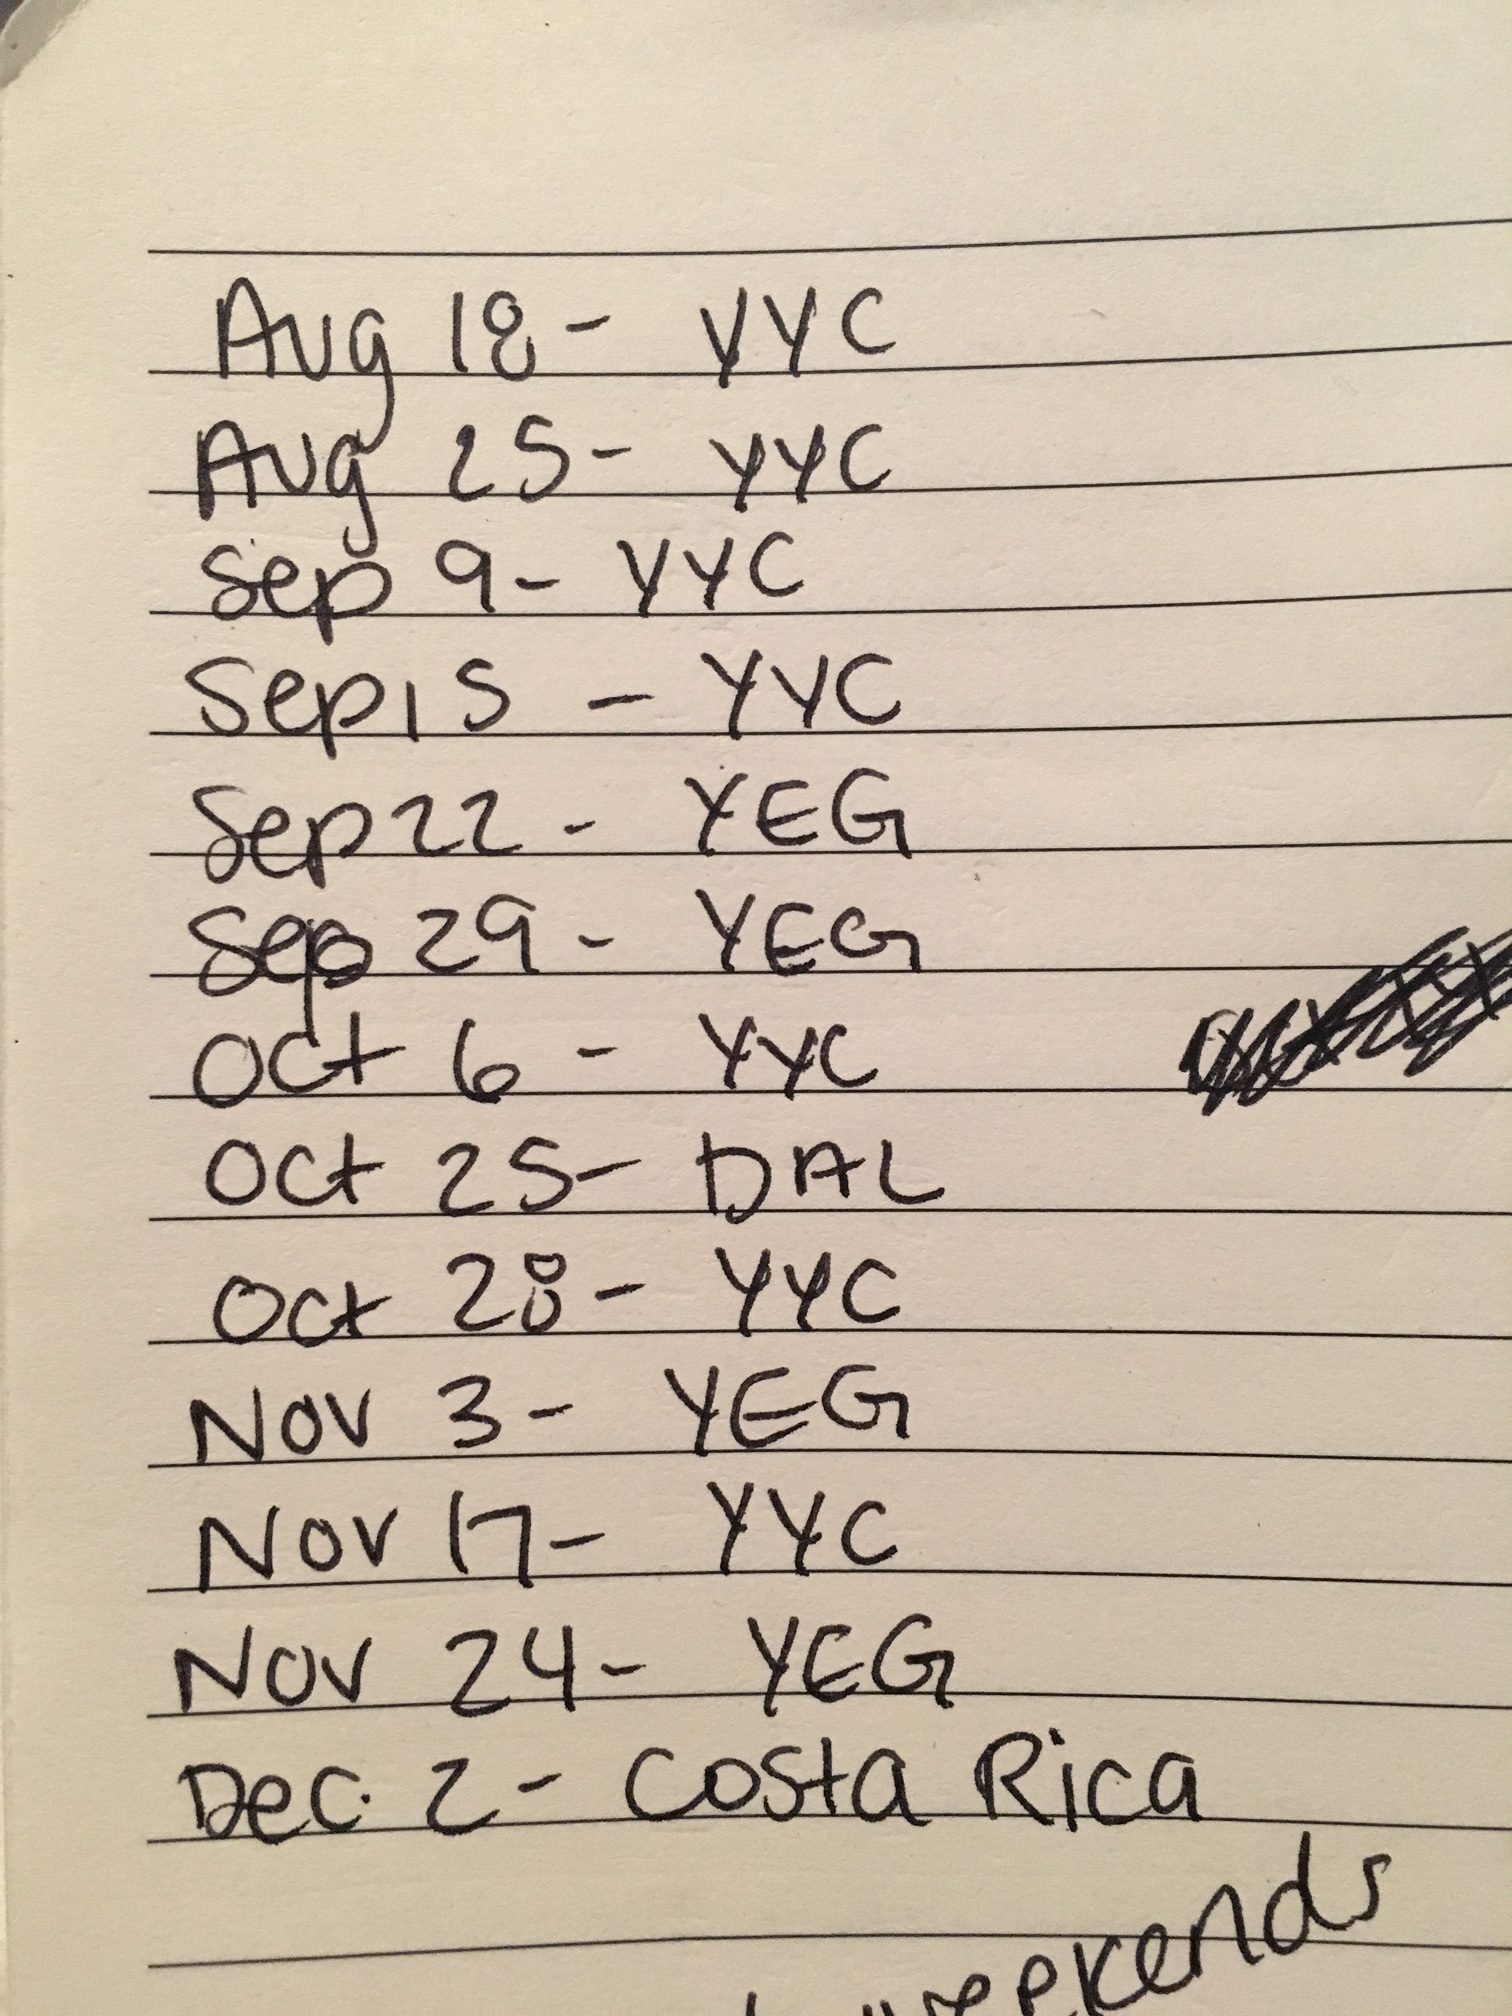 Aug 18 - YYC
Aug 25 - YYC
Sep 9 - YYC
Sep 15 - YYC
Sep 22 - YEG
Sep 29 - YEG
Oct 6 - YYC
Oct 25 - DAL
Oct 28 - YYC
Nov 3 - YEG
Nov 17 - YYC
Nov 24 - YEG
Dec. 2 - Costa Rica
weekends